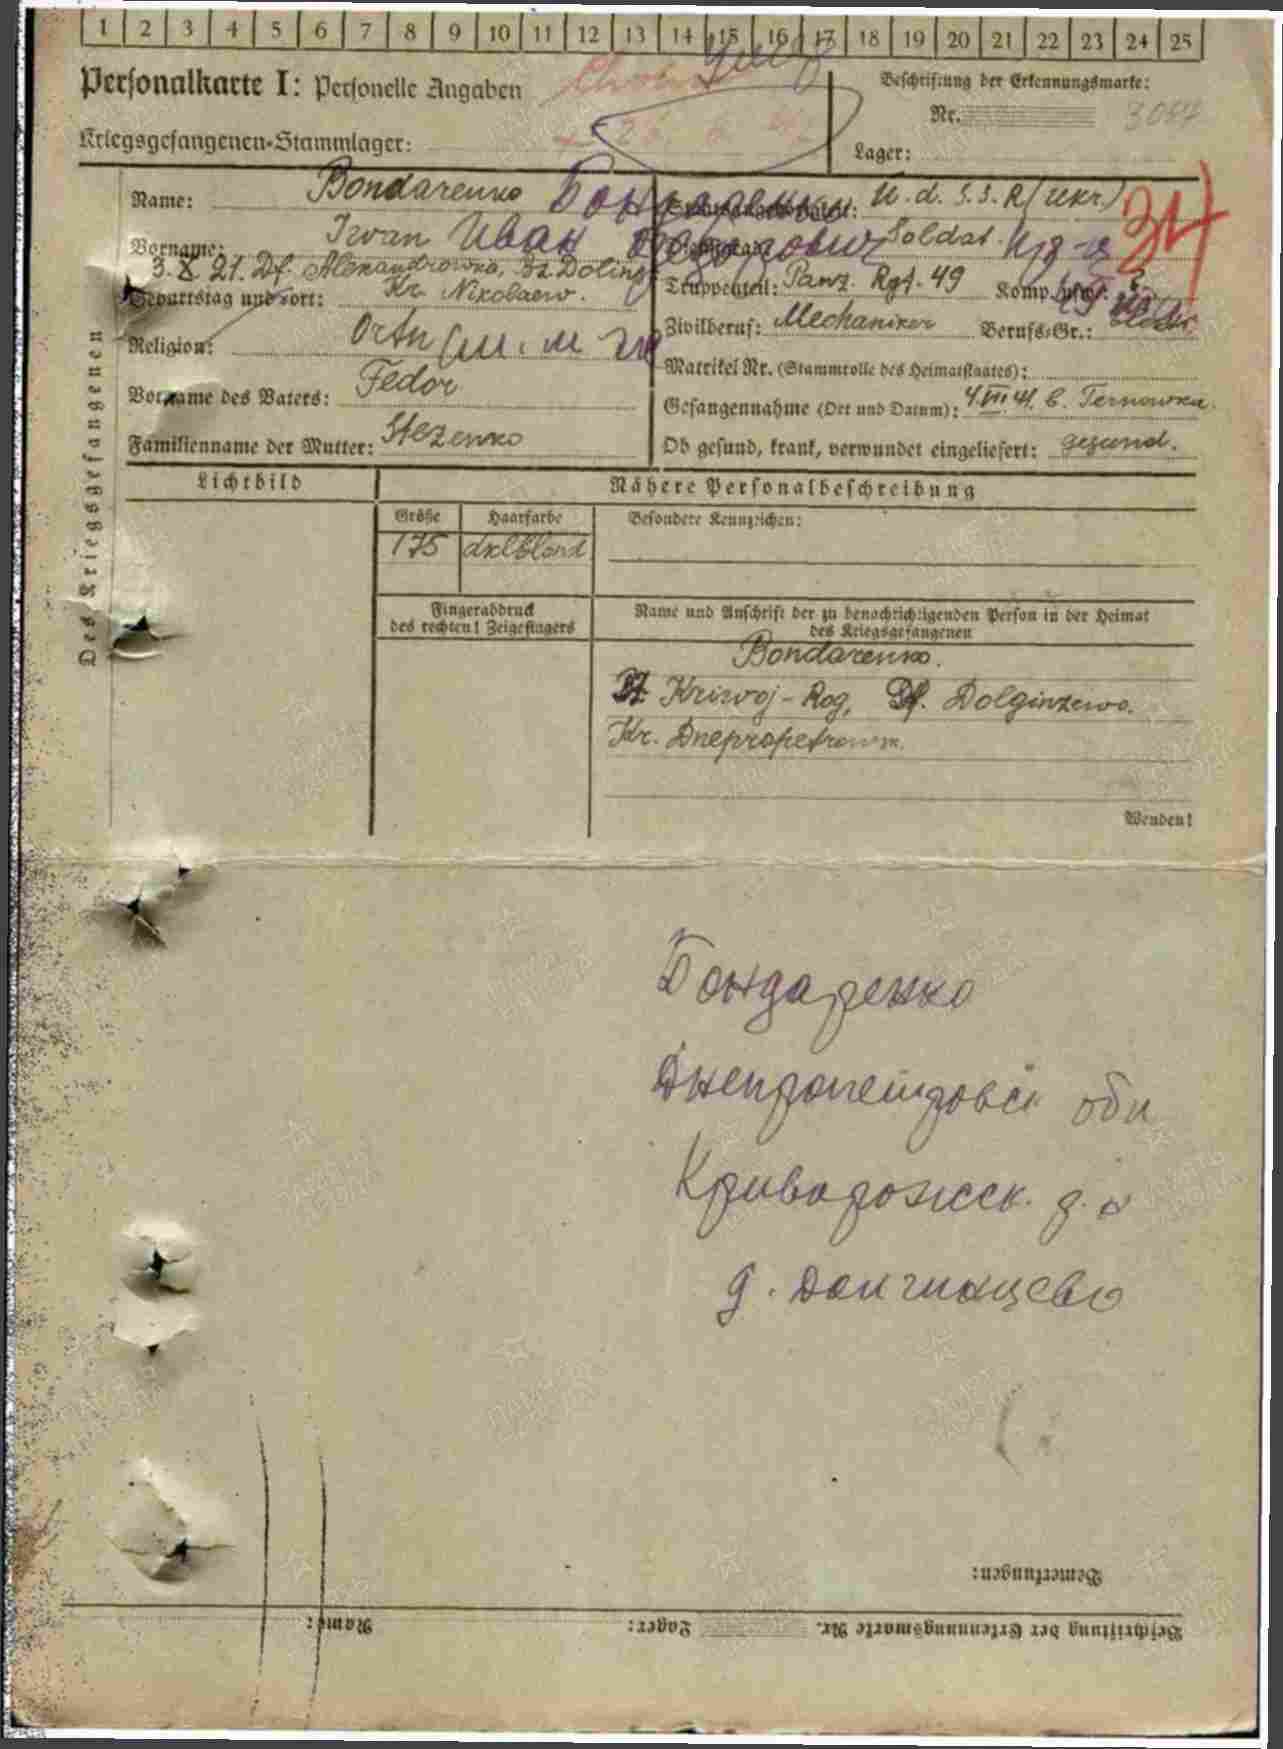 1 2 3 4 5 6 7 8 9 10 11 12 13 14 15 16 17 18 19 20 21 22 23 24 25
Personalkarte I: Personelle Angaben
Beschriftung der Erkennungsmarke:
Nr. 3087
Kriegsgefangenen-Stammlager:
Lager:
Des Kriegsgefangenen
Name: Bondarenko Бондаренко
U.d.S.S.R (Ukr.)
34
Vorname: Iwan Иван
Soldat
3.X.21. Df. Alexandrowka, Bz. Dolinsk
Geburtstag und -ort: Kr. Nikolaew.
Truppenteil: Panz. Rgt. 49 Komp.
Zivilberuf: Mechaniker Berufs-Gr.:
Religion: Orth
Matrikel Nr. (Stammrolle des Heimatstaates):
Vorname des Vaters: Fedor
Gefangennahme (Ort und Datum): 4.VIII.41. b. Ternowka.
Familienname der Mutter: Stezenko
Ob gesund, krank, verwundet eingeliefert: gesund.
Lichtbild
Nähere Personalbeschreibung
Größe Haarfarbe Besondere Kennzeichen:
175 dklblond
Fingerabdruck
des rechten! Zeigefingers
Name und Anschrift der zu benachrichtigenden Person in der Heimat
des Kriegsgefangenen
Bondarenko.
St. Kriwoj-Rog, Df. Dolginzewo.
Kr. Dnepropetrowsk.
Wenden!
Бондаренко
Днепропетровск обл
Криворожск. р.н
д. Долгинцево
Bemerkungen:
Beschriftung der Erkennungsmarke Nr. Lager: Name: